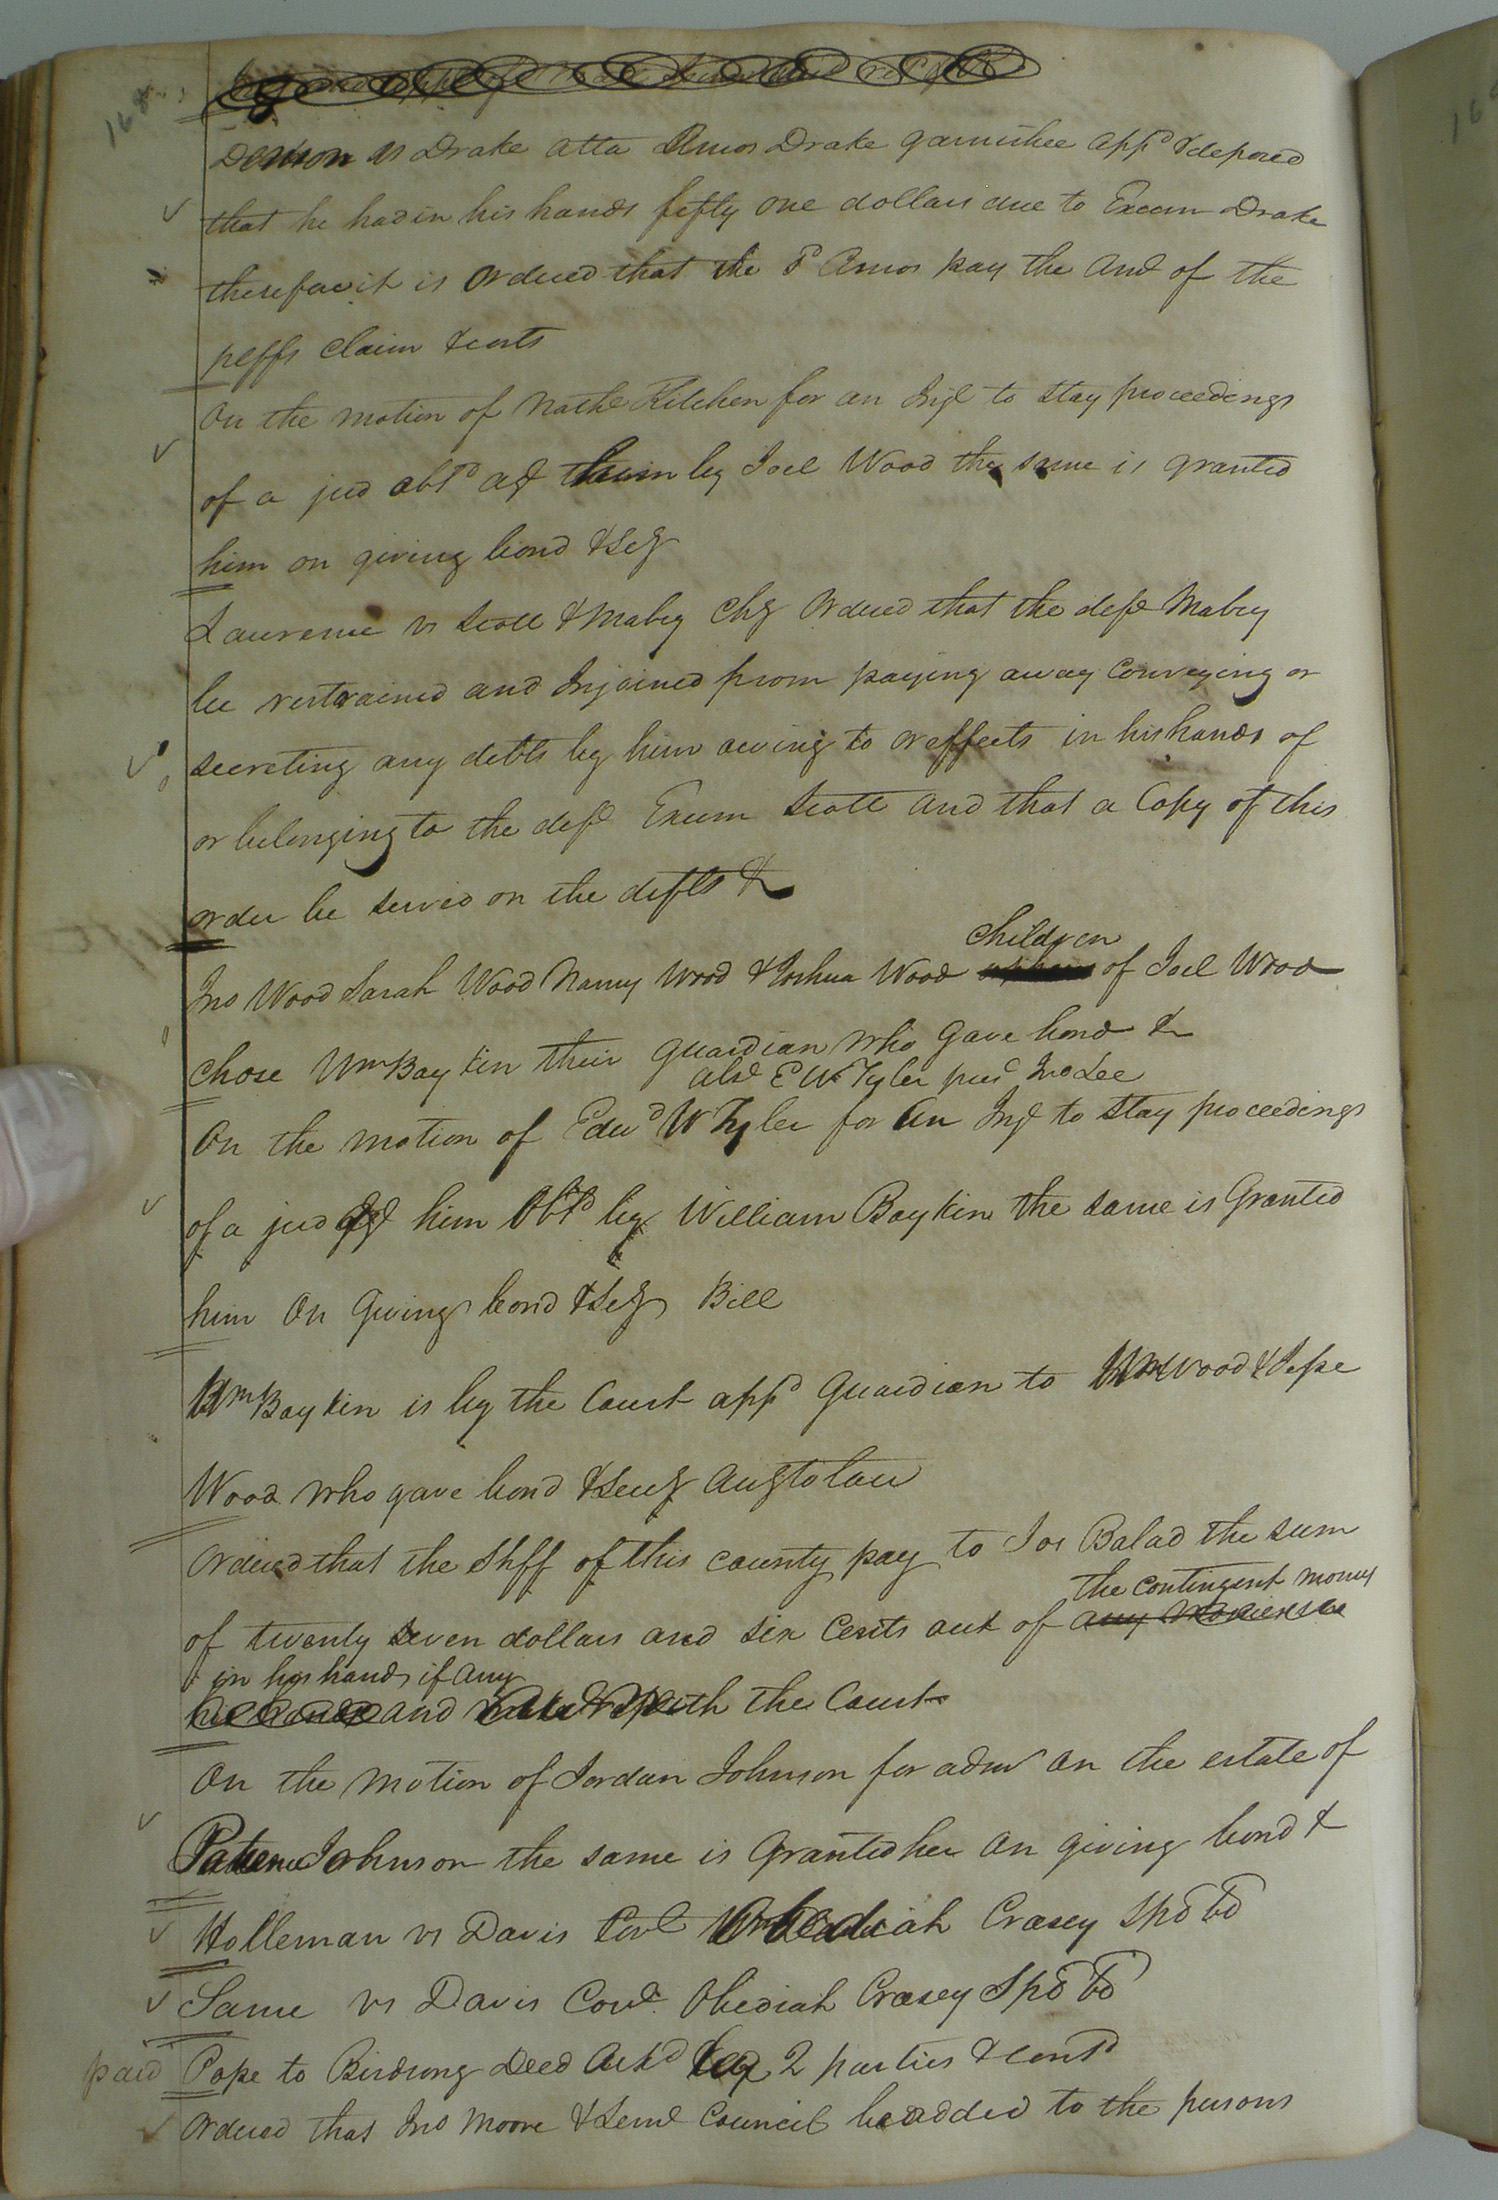 168
Denson vs Drake atta Amos Drake garnishee appd & deposed
that he had in his hands fifty one dollars due to Exum Drake
therefore it is Ordered that the sd Amos pay the Amt of the
pltffs claim & costs
On the motion of Nathl Kitchen for an Injt to stay proceedings
of a jud obtd agt him by Joel Wood the same is granted
him on giving bond & Sey
Laurence vs Scott & Mabry Chy Ordered that the deft Mabry
be restrained and Injoined from paying away Conveying or
secreting any debts by him owing to or effects in his hands of
or belonging to the deft Exum Scott and that a Copy of this
order be served on the defts &
children
Jno Wood Sarah Wood Nancy Wood & Joshua Wood of Joel Wood
chose Wm Boykin their guardian who Gave bond &
also E W Tyler pres Jno Lee
On the motion of Edwd W Tyler for An Injt to stay proceedings
of a jud agt him Obtd by William Boykin the same is Granted
him On Giving bond & Sey Bill
Wm Boykin is by the Court appd Guardian to Wm Wood & Jesse
Wood who gave bond & Secy Augto law
Ordered that the Shff of this county pay to Jos Balad the sum
the contingent money
of twenty seven dollars and six Cents out of any
in his hands if any
and with the Court
On the motion of Jordan Johnson for admr on the estate of
Patience Johnson the same is Granted her on giving bond &
Holleman vs Davis Covt Obediah Crasey Spd bd
Same vs Davis Covt Obediah Crasey Spd bd
paid Pope to Birdsong Deed Ackd by 2 parties & contd
Ordered that Jno Moore & Leml Council be added to the persons